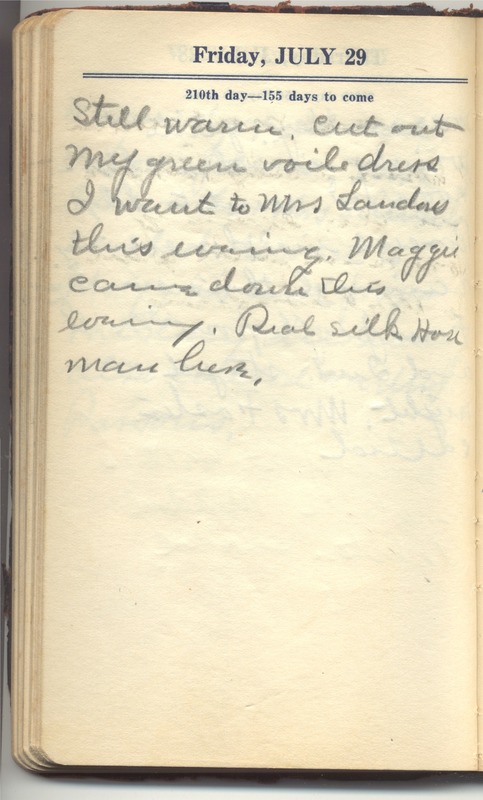 Friday, JULY 29
210th day—155 days to come
Still warm. Cut out
my green voile dress
I want to Mrs Landers
this evening. Maggie
came down this
evening. Real Silk Hose
man here.